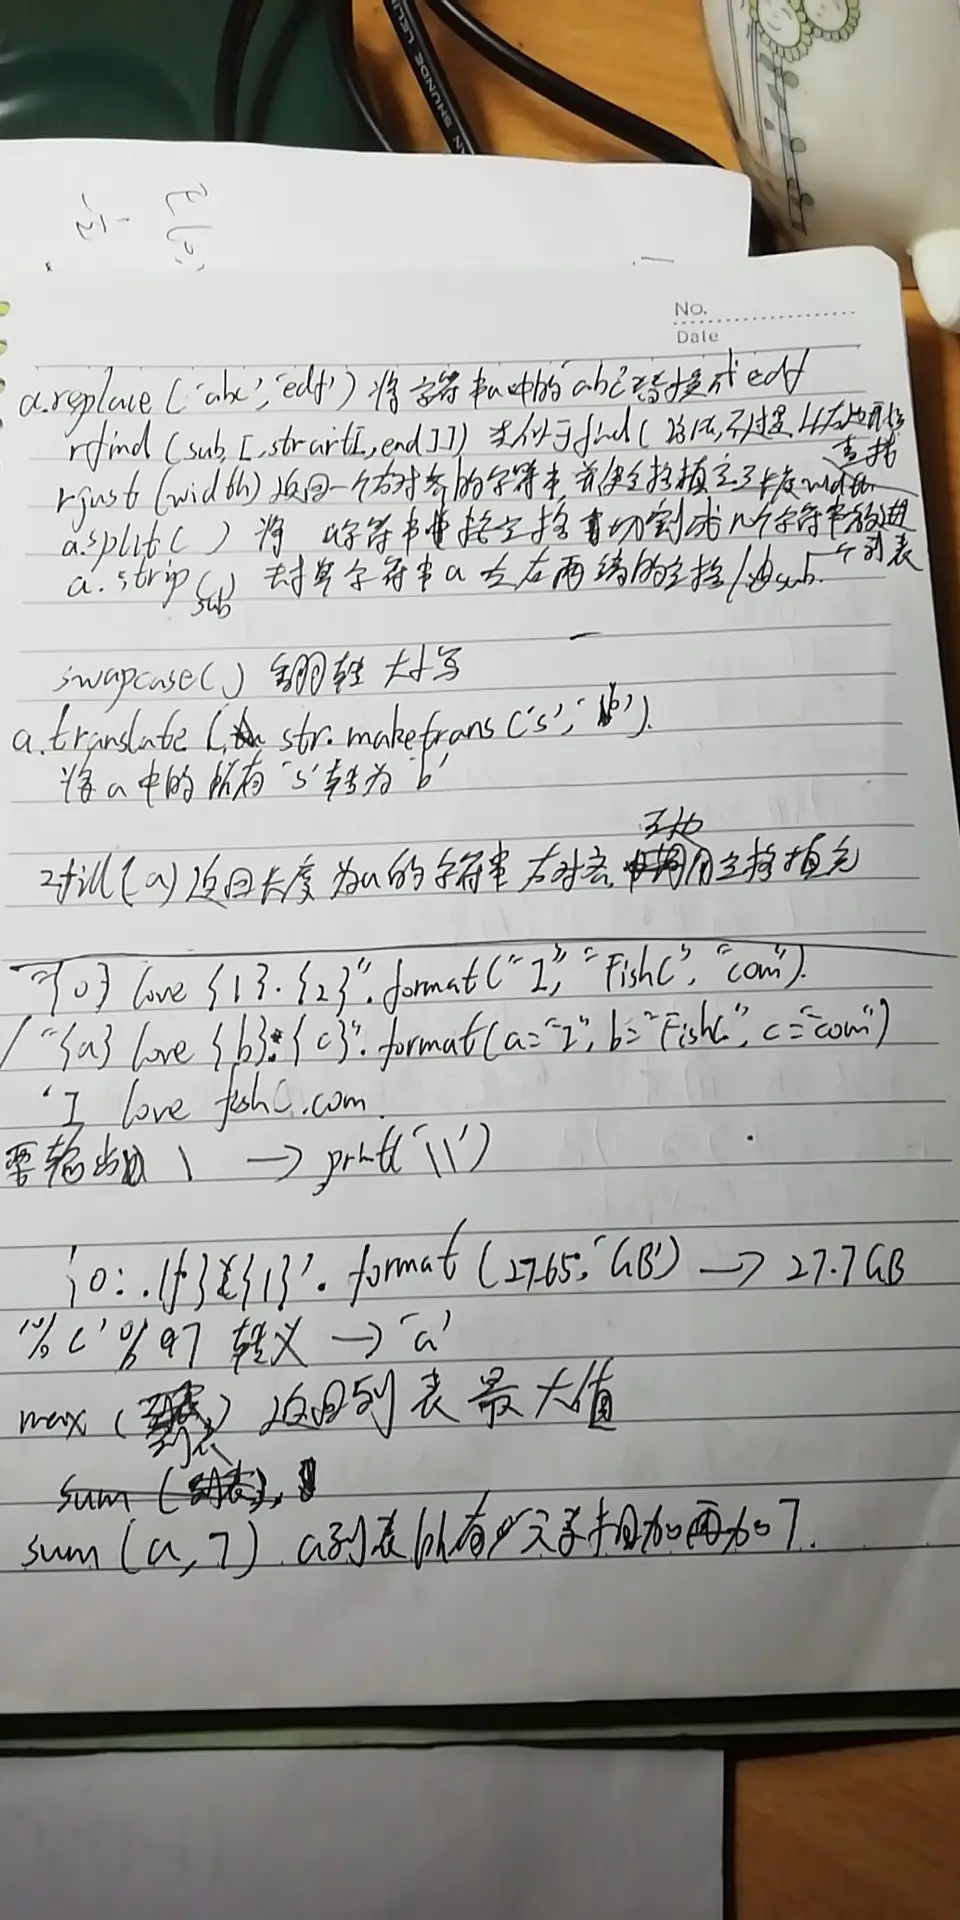 No.
Date
a.replace('abc','edf') 将字符串a中的'abc'替换成'edf
rfind(sub[,strart[,end]]) 类似于find()方法,不过是从右边开始
查找
rjust(width) 返回一个右对齐的字符串 并使空格填充至长度width
a.split() 将 a字符串按空格切割成n个字符串放进
一个列表
a.strip(sub) 去掉字符串a左右两端的空格/由sub.
swapcase() 翻转大小写
a.translate(str.maketrans('s','b')).
将a中的所有's'转为'b'
互如
zfill(a) 返回长度为a的字符串 右对齐,用空格填充
"{0} love {1}.{2}".format("I","FishC","com").
/ "{a} love {b}.{c}".format(a="I",b="FishC",c="com")
'I love fishC.com.
要输出 \ → print('\\')
'{0:.1f}{1}'.format(27.65,'GB') → 27.7GB
'%c'%97 转义 → 'a'
max(列表) 返回列表最大值
sum(列表),
sum(a,7) a列表所有元素相加再加7.